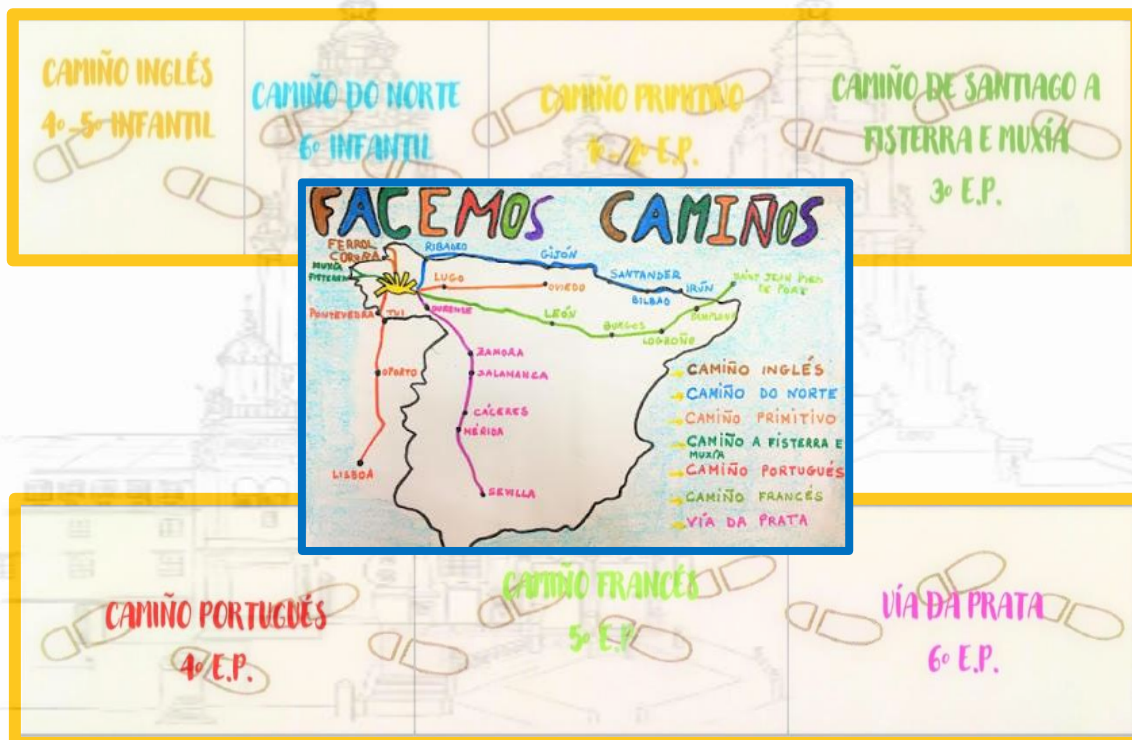 CAMIÑO INGLÉS
4º-5º INFANTIL
CAMIÑO DO NORTE
6º INFANTIL
CAMIÑO PRIMITIVO
1º-2º E.P.
CAMIÑO DE SANTIAGO A
FISTERRA E MUXÍA
3º E.P.
FACEMOS CAMIÑOS
FERROL
CORUÑA
MUXÍA
FISTERRA
RIBADEO
GIJÓN
SANTANDER
BILBAO
IRÚN
SAINT JEAN PIED
DE PORT
LUGO
OVIEDO
PONTEVEDRA
TUI
OURENSE
LEÓN
BURGOS
LOGROÑO
PAMPLONA
ZAMORA
SALAMANCA
OPORTO
CÁCERES
MÉRIDA
LISBOA
SEVILLA
CAMIÑO INGLÉS
CAMIÑO DO NORTE
CAMIÑO PRIMITIVO
CAMIÑO A FISTERRA E
MUXÍA
CAMIÑO PORTUGUÉS
CAMIÑO FRANCÉS
VÍA DA PRATA
CAMIÑO PORTUGUÉS
4º E.P.
CAMIÑO FRANCÉS
5º E.P.
VÍA DA PRATA
6º E.P.